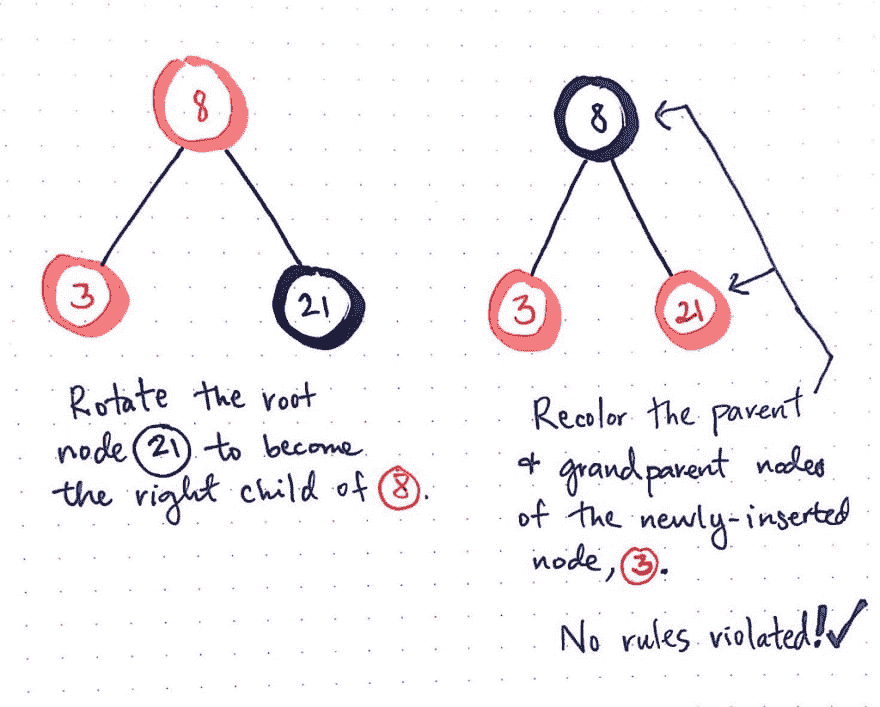 8
3
21
Rotate the root
node 21 to become
the right child of 8.
8
3
21
Recolor the parent
& grandparent nodes
of the newly-inserted
node, 3.
No rules violated!✓